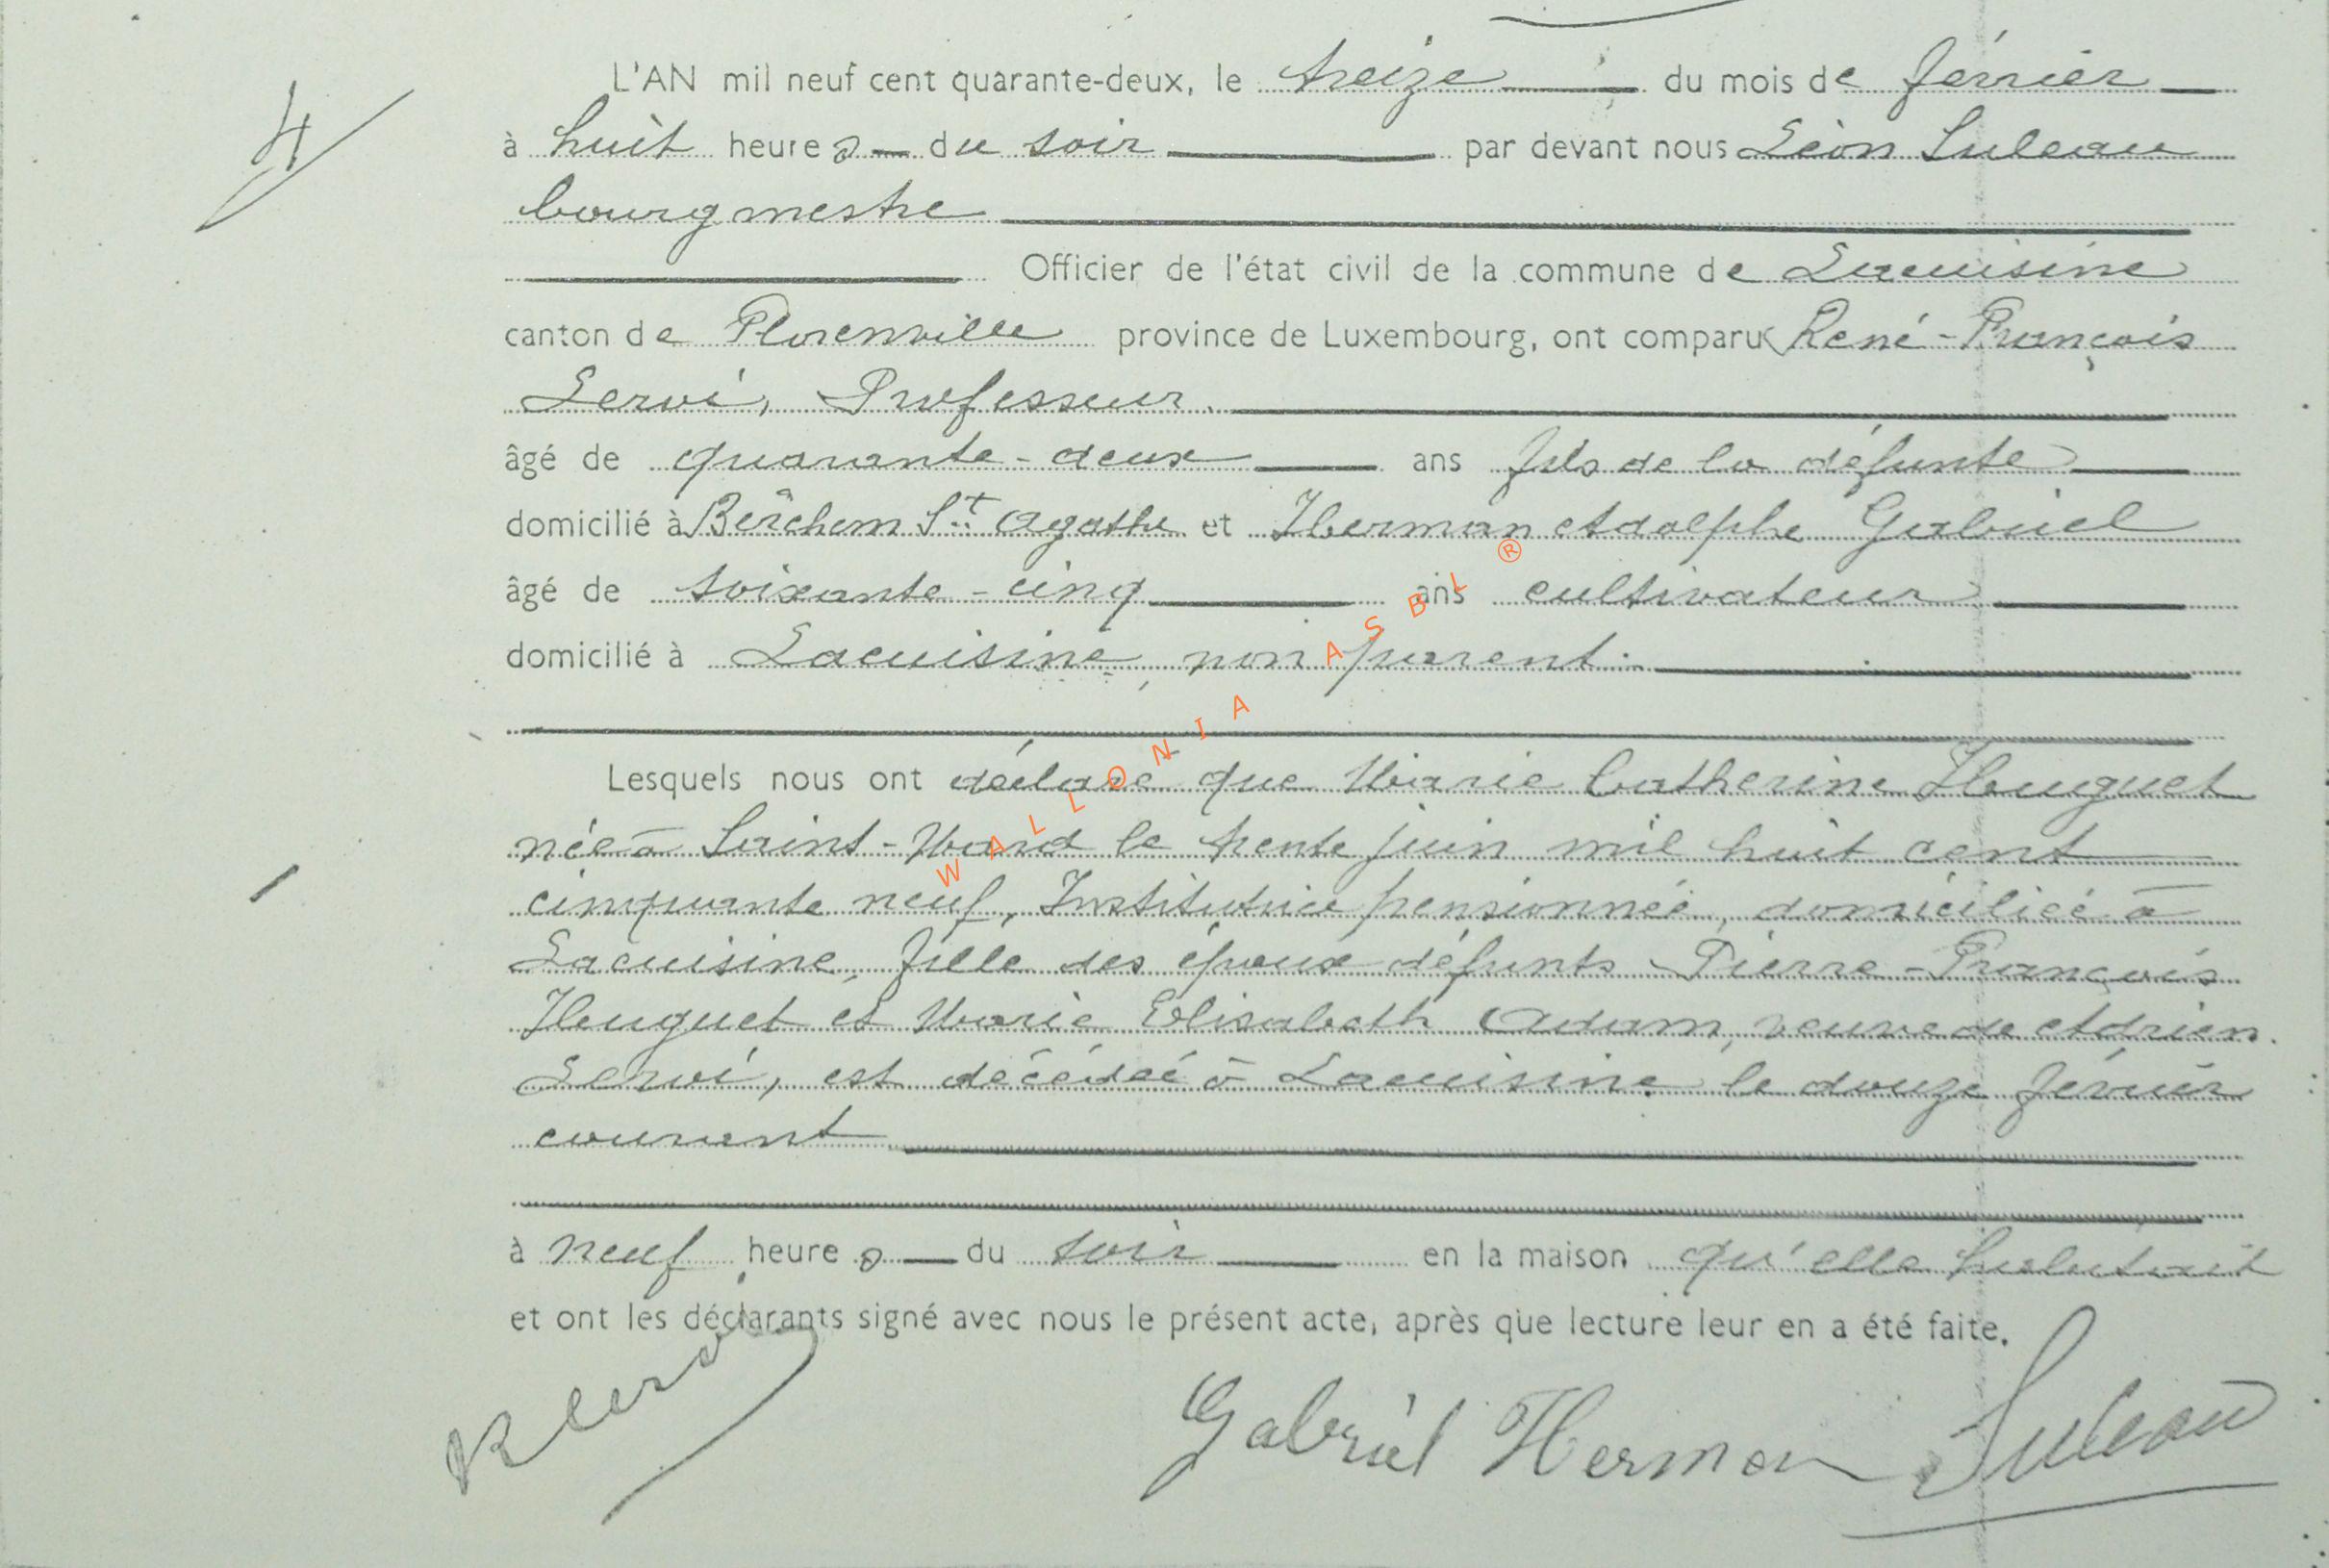 L'AN mil neuf cent quarante-deux, le treize du mois de février
4
à huit heures du soir par devant nous Léon Suleau
bourgmestre
Officier de l'état civil de la commune de Lacuisine
canton de Florenville province de Luxembourg, ont comparu René-François
Servé, Professeur.
âgé de quarante-deux ans fils de la défunte
domicilié à Berchem Ste Agathe et Herman Adolphe Gabriel
âgé de soixante-cinq ans cultivateur
domicilié à Lacuisine, non parent.
Lesquels nous ont déclaré que Marie Catherine Huguet
née à Saint-Mard le trente juin mil huit cent
cinquante neuf, Institutrice pensionnée, domiciliée à
Lacuisine, fille des époux défunts Pierre-François
Huguet et Marie Elisabeth Adam, veuve de Adrien
Servé, est décédée à Lacuisine le douze février
courant
à neuf heures du soir en la maison qu'elle habitait
et ont les déclarants signé avec nous le présent acte, après que lecture leur en a été faite.
Gabriel Herman Suleau
WALLONIA ASBL ®